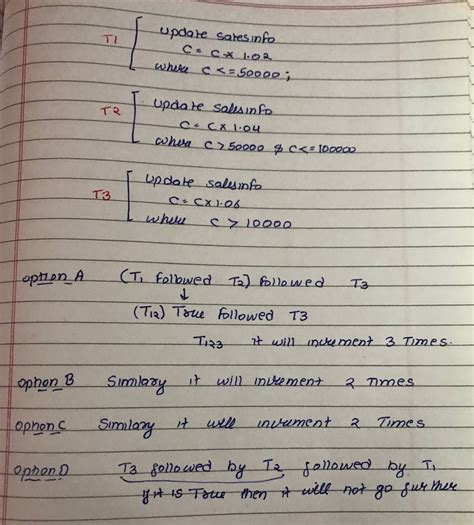 T1 update salesinfo
C = C * 1.02
where C <= 50000 ;
T2 update salesinfo
C = C x 1.04
where C > 50000 & C <= 100000
T3 update salesinfo
C = C x 1.06
where C > 10000
option A (T1 followed T2) followed T3
↓
(T12) True followed T3
T123 it will increment 3 Times.
option B Similary it will increment 2 Times
option C Similary it will increment 2 Times
option D T3 followed by T2 followed by T1
if it is True then it will not go further